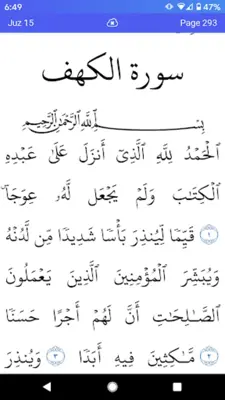 6:49 47%
Juz 15 Page 293
سورة الكهف
بِسْمِ ٱللَّهِ ٱلرَّحْمَٰنِ ٱلرَّحِيمِ
ٱلْحَمْدُ لِلَّهِ ٱلَّذِىٓ أَنزَلَ عَلَىٰ عَبْدِهِ
ٱلْكِتَٰبَ وَلَمْ يَجْعَل لَّهُۥ عِوَجَاۜ
١ قَيِّمًا لِّيُنذِرَ بَأْسًا شَدِيدًا مِّن لَّدُنْهُ
وَيُبَشِّرَ ٱلْمُؤْمِنِينَ ٱلَّذِينَ يَعْمَلُونَ
ٱلصَّٰلِحَٰتِ أَنَّ لَهُمْ أَجْرًا حَسَنًا
٢ مَّٰكِثِينَ فِيهِ أَبَدًا ٣ وَيُنذِرَ